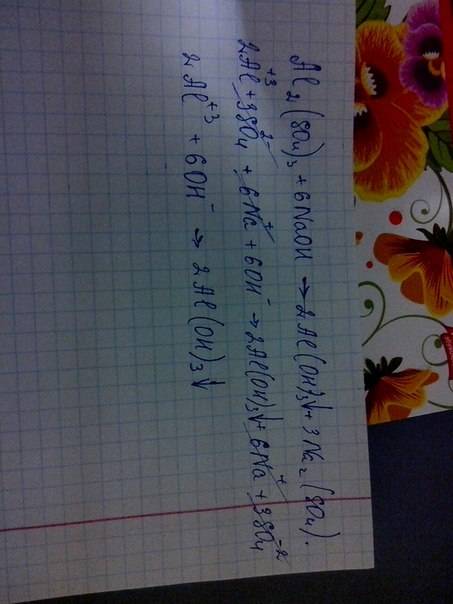 Al₂(SO₄)₃ + 6NaOH → 2Al(OH)₃↓ + 3Na₂(SO₄).
2Al⁺³ + 3SO₄²⁻ + 6Na⁺ + 6OH⁻ → 2Al(OH)₃↓ + 6Na⁺ + 3SO₄⁻²
2Al⁺³ + 6OH⁻ → 2Al(OH)₃↓